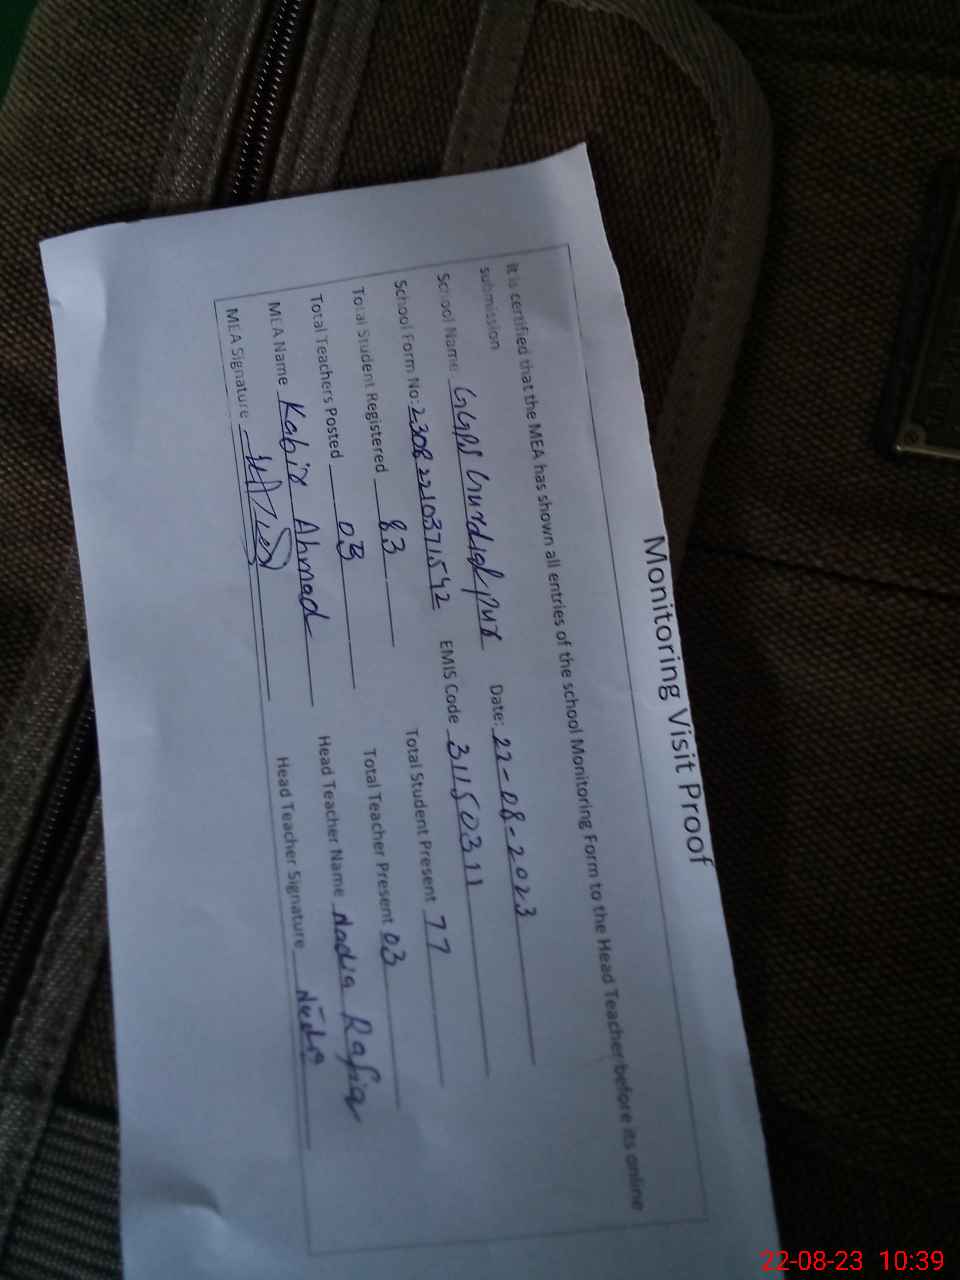 Monitoring Visit Proof
It is certified that the MEA has shown all entries of the school Monitoring Form to the Head Teacher before its online
submission
School Name GGPS Gurdialpur Date: 22-08-2023
School Form No: 23082210371542 EMIS Code 31150311
Total Student Registered 83 Total Student Present 77
Total Teachers Posted 03 Total Teacher Present 03
MEA Name Kabir Ahmad Head Teacher Name Nadia Rafiq
MEA Signature Head Teacher Signature Nadia
22-08-23 10:39